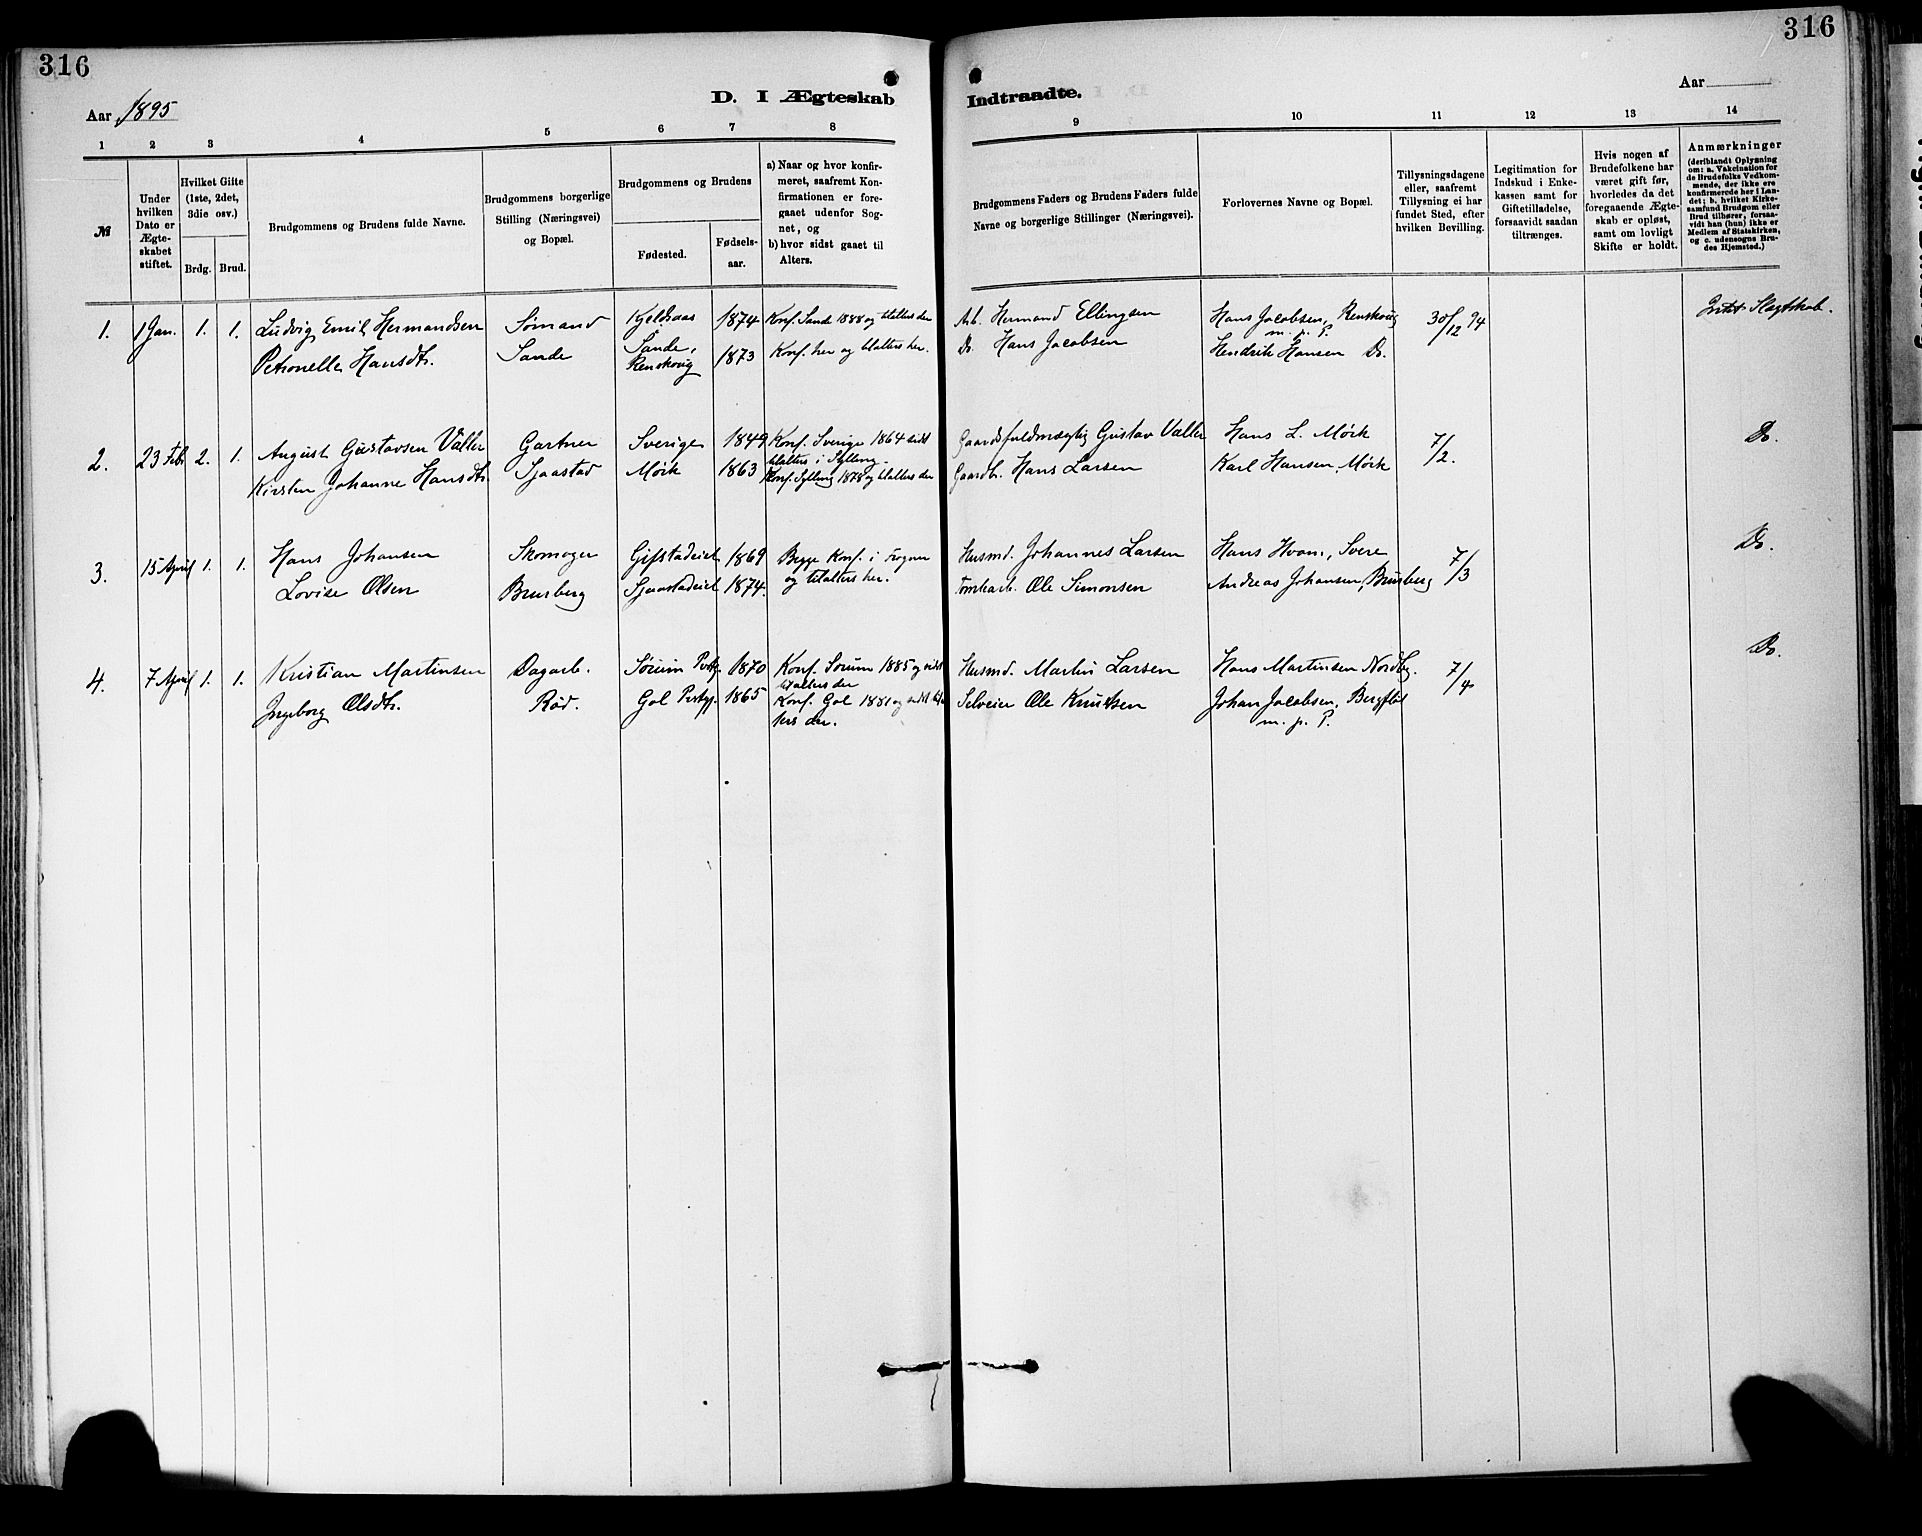 316
316
D. I Ægteskab
Indtraadte.
Aar 1895
Aar
1
2
3
4
5
6
7
8
9
10
11
12
13
14
№
Under
hvilken
Dato er
Ægte-
skabet
stiftet.
Hvilket Gifte
(1ste, 2det,
3die osv.)
Brdg.
Brud.
Brudgommens og Brudens fulde Navne.
Brudgommens borgerlige
Stilling (Næringsvei)
og Bopæl.
Brudgommens og Brudens
Fødested.
Fødsels-
aar.
a) Naar og hvor konfir-
meret, saafremt Kon-
firmationen er fore-
gaaet udenfor Sog-
net, og
b) hvor sidst gaaet til
Alters.
Brudgommens Faders og Brudens Faders fulde
Navne og borgerlige Stillinger (Næringsvei).
Forlovernes Navne og Bopæl.
Tillysningsdagene
eller, saafremt
Tillysning ei har
fundet Sted, efter
hvilken Bevilling.
Legitimation for
Indskud i Enke-
kassen samt for
Giftetilladelse,
forsaavidt saadan
tiltrænges.
Hvis nogen af
Brudefolkene har
været gift før,
hvorledes da det
foregaaende Ægte-
skab er opløst,
samt om lovligt
Skifte er holdt.
Anmærkninger
(deriblandt Oplysning
om: a. Vakcination for
de Brudefolks Vedkom-
mende, der ikke ere
konfirmerede her i Lan-
det; b. hvilket Kirke-
samfund Brudgom eller
Brud tilhører, forsaa-
vidt han (hun) ikke er
Medlem af Statskirken,
og c. udensogns Bru-
des Hjemsted.)
1. 1 Jan. 1. 1. Ludvig Emil Hermandsen Sømand Kjeldsaas 1874 Konf. Sande 1888 og tilalters der Arb. Hermand Ellingsen Hans Jacobsen, Renskovig 30/12 94 Intet Slægtskab.
Petronelle Hansdtr. Sande Sande, 1873 Konf. her og tilalters her. Do. Hans Jacobsen m. p. P.
Renskovig Hendrik Hansen Do.
2. 23 Febr 2. 1. August Gustavsen Valler Gartner Sverige 1849 Konf. Sverige 1864 sidst Gaardsfuldmægtig Gustav Valler Hans L. Mørk 7/2. Do.
tilalters i Sylling.
Kirsten Johanne Hansdtr. Sjaastad Mørk 1863 Konf. Sylling 1878 og tilalters der Gaardbr. Hans Larsen Karl Hansen, Mørk
3. 15 April 1. 1. Hans Johansen Skomager Gifstadeiet 1869 Begge Konf. i Frogner Husmd. Johannes Larsen Hans Hvam, Svere 7/3 Do.
Lovise Olsen Brusberg Sjaastadeiet 1874. og tilalters her. Tomtearb. Ole Simonsen Andreas Johansen, Brusberg
4. 7 April 1. 1. Kristian Martinsen Dagarb. Sørum Prstgj. 1870 Konf. Sørum 1885 og sidst Husmd. Martin Larsen Hans Martinsen Nordby. 7/4 Do.
tilalters der
Ingeborg Olsdtr. Rød. Gol Prstgj. 1865 Konf. Gol 1881 og sidst tilal Selveier Ole Knutsen Johan Jacobsen, Bergflot
ters der. m. p. P.